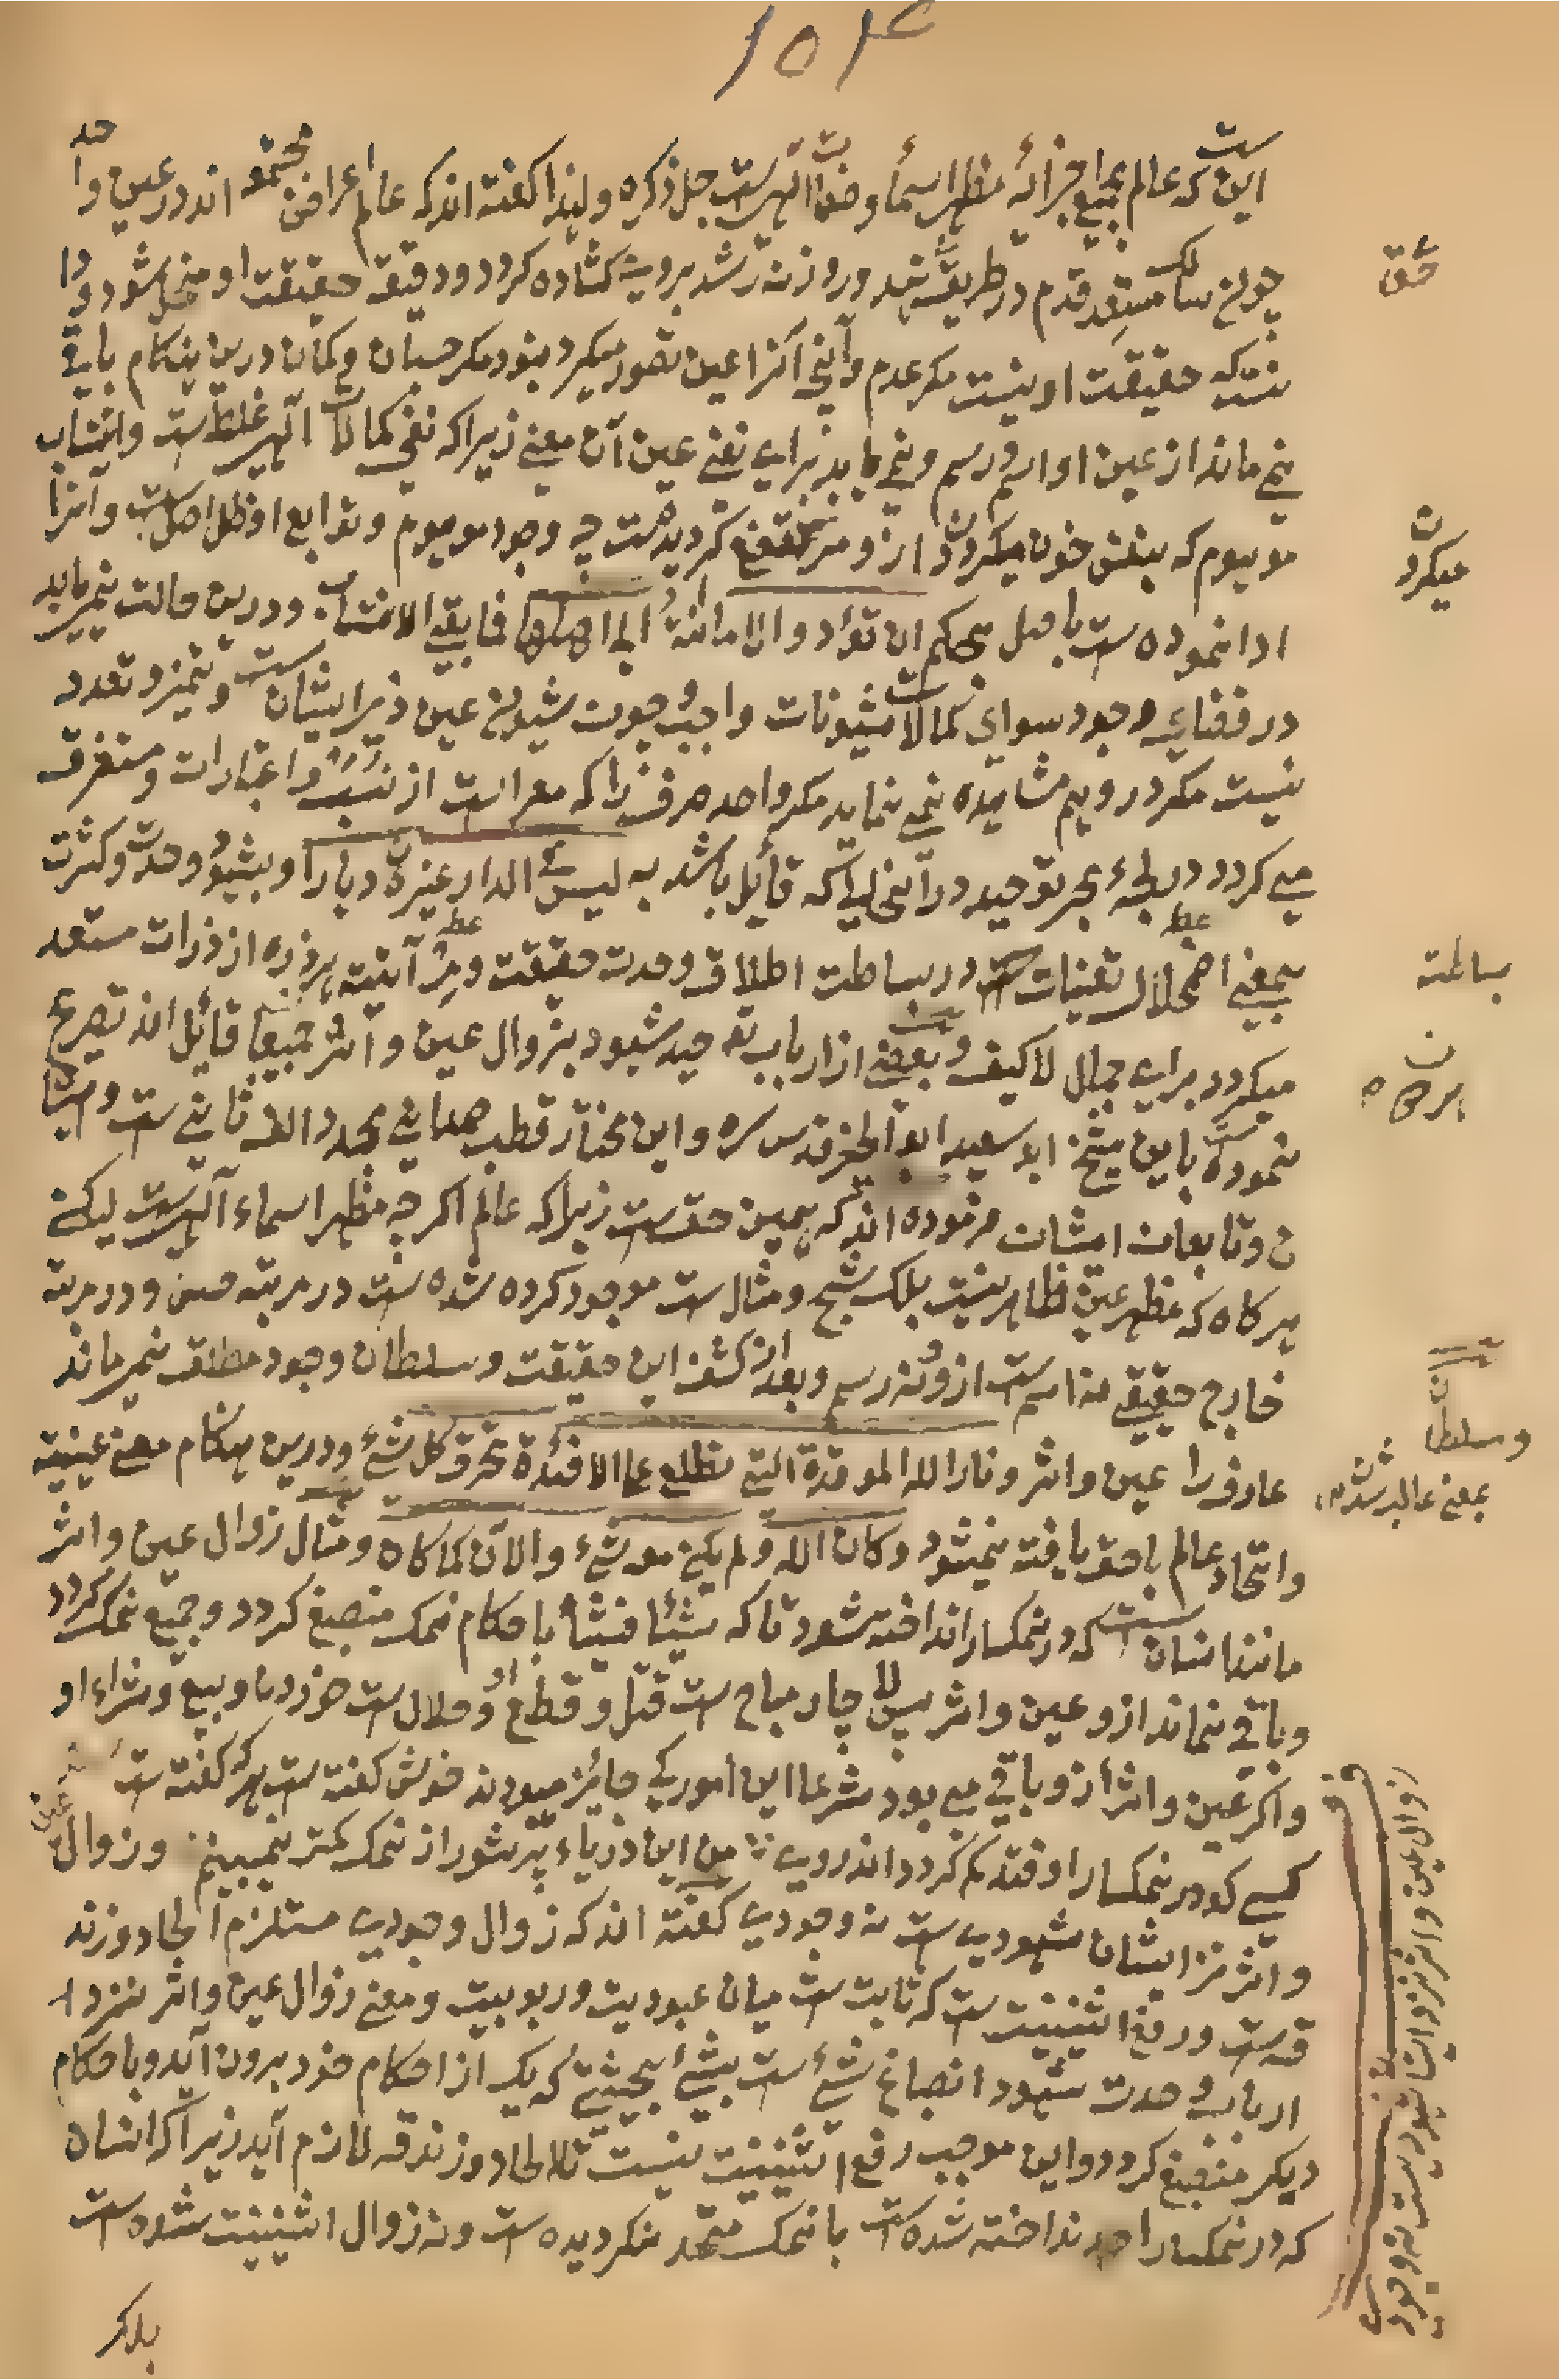 ۱۵۴
اینست که عالم بجمیع اجزائه مظهر اسما و صفات الهی ست جل ذکره و لهذا گفته اند که عالم اعراض مجتمعه اند در عین واحد
چون سالک مستعد قدم در طریقت نهد و روزنه رشد بر وی کشاده گردد و دقیقه حقیقت او منحل شود و دا
نست که حقیقت او نیست مگر عدم و آنچه آنرا عین تصور میکرد نبود مگر حسبان و گمان درین هنگام باقی
نمی ماند از عین او اسم و رسم و نمی یابد برای نفی عین آن معنی زیرا که نفی کمالات الهی غلط ست و انتساب
موهوم که بنفس خون میکردن ازو مرتفع گردیده است چه وجود موهوم و توابع او ظل اصل ست و آنرا
ادا نموده ست باصل بحکم ان تؤدوا الامانة الی اهلها فما بقی الا انتساب و درین حالت نمی یابد
در فضای وجود سوای کمالات شیونات واجب چون شیون عین ذیر ایشان ست و تمیز و تعدد
نیست مگر در وهم مشاهده نمی نماید مگر واحد صرف را که معراست از نسب و اعتبارات و مستغرق
می گردد در لجهٔ بحر توحید در آنحالی که قائل باشد به لیس فی الدار غیره دیارا و بشهود وحدت و کثرت
بمعنی اضمحلال تعینات ست در بساطت اطلاق وحدت حقیقت و مر آئینه هر ذره از ذرات مستعد
میکردد برای جمال لا کیف و بعضی از ارباب توحید شهود بزوال عین و اثر جمیعا قائل اند تصریح
نموده ست باین شیخ ابو سعید ابو الخیر قدس سره و این مختار قطب صمدانی مجدد الف ثانی ست و ایشا
ن و تابعان ایشان فرموده اند که همین حق ست زیرا که عالم اگرچه مظهر اسماء الهی ست لیکن
هرگاه که مظهر عین ظاهر نیست بلکه شبح و مثال ست موجود کرده شده ست در مرتبه حس و در مرتبه
خارج حقیقی نه اسم ست ازو نه رسم و بعد از کشف این حقیقت و سلطان وجود مطلق نمی ماند
عارف را عین و اثر و نار الله الموقدة التی تطلع علی الافئدة تحرق کل شیٔ و درین هنگام معنی عینیة
و اتحاد عالم با حق یافته نمیشود و کان الله و لم یکن معه شیٔ و الآن کما کان و مثال زوال عین و اثر
مانند انسان ست که در نمکسار انداخته شود تا که شیئا فشیئا با حکام نمک منصبغ گردد و جمیع نمک گردد
و باقی نماند ازو عین و اثر پس لا چار مباح ست قتل و قطع او و حلال ست خوردن و بیع و شراء او
و اگر عین و اثر ازو باقی می بود شرعا این امور کی جائز میبود نه خوش گفته ست هر که گفته ست
کسی کو در نمکسار اوفتد گم گردد اندر وی من این دریاء پر شور از نمک کمتر نمیبینم و زوال عین
و اثر نزد ایشان شهودی ست نه وجودی گفته اند که زوال وجودی مستلزم الحاد و زند
قه ست و رفع اثنینیت ست که ثابت ست میان عبودیت و ربوبیت و معنی زوال عین و اثر نزد ا
ارباب وحدت شهود انصباغ شیٔ ست بشیٔ بحیثیتی که یک از احکام خود برون آید و با حکام
دیگر منصبغ گردد و این موجب رفع اثنینیت نیست تا الحاد و زندقه لازم آید زیرا که انسان
که در نمکسار انداخته شده ست با نمک متحد نگردیده ست و نه زوال اثنینیت شده ست
بلکر
حق
میکردن
بساطت
هرگاه
وسلطان
بمعنی غالب شدن
زوال عین و اثر نزد ایشان شهودیست نه وجودی